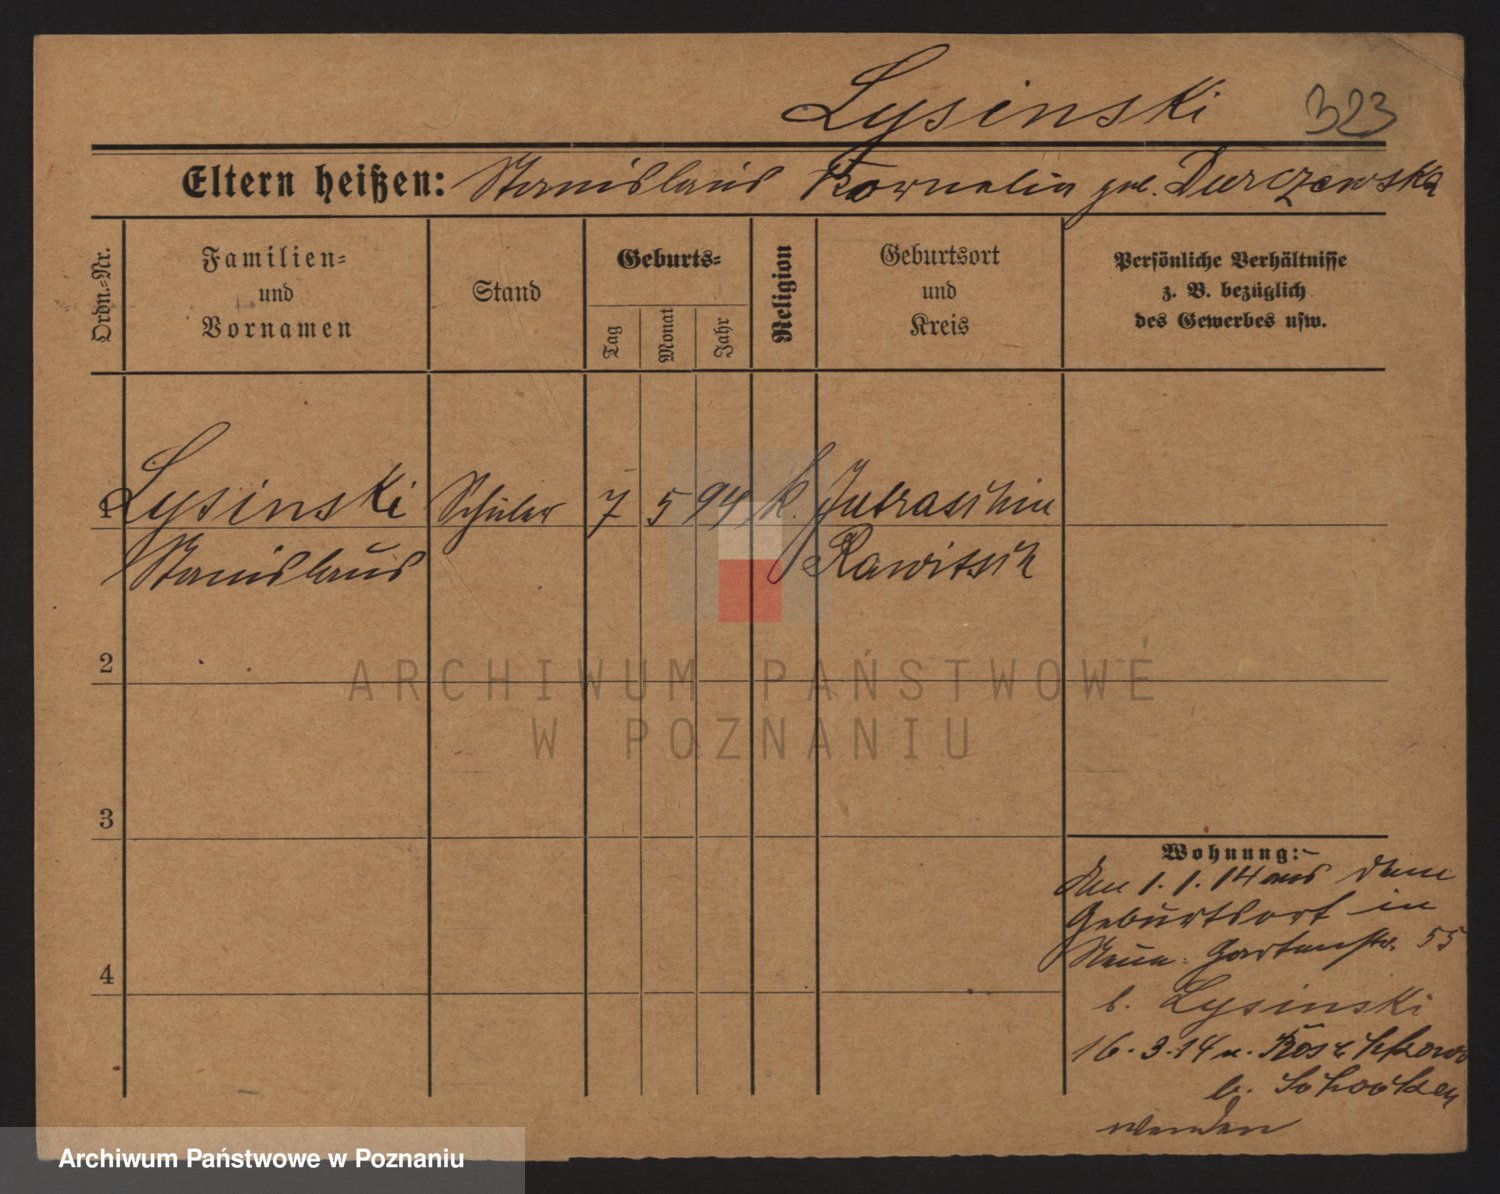 Lysinski 323
Eltern heißen: Stanislaus Kornelia geb. Durczewska
Ordn.=Nr.
Familien=
und
Vornamen
Stand
Geburts=
Tag
Monat
Jahr
Religion
Geburtsort
und
Kreis
Persönliche Verhältnisse
z. B. bezüglich
des Gewerbes usw.
1 Lysinski Schüler 7 5 94 k. Jutraschin
Stanislaus Rawitsch
2
3
4
Wohnung:
Den 1. 1. 14 aus dem
Geburtsort in
Neue Gartenstr. 55
b. Lysinski
16. 3. 14 n.
b.
ARCHIWUM PAŃSTWOWE
W POZNANIU
Archiwum Państwowe w Poznaniu